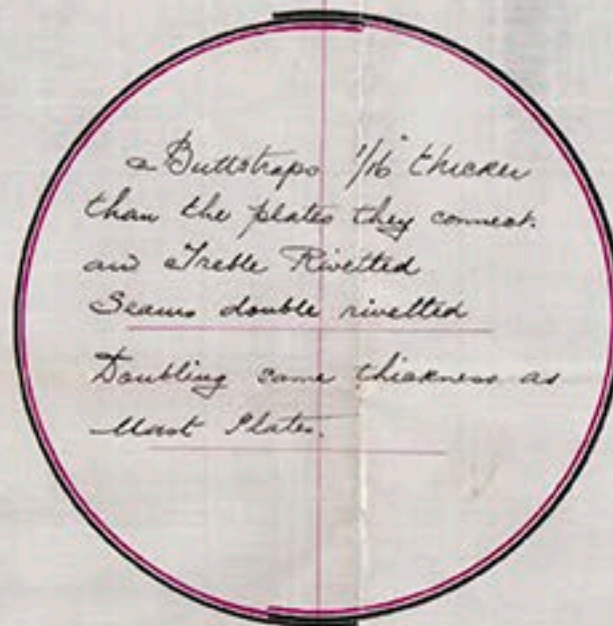 Buttstraps 1/16" thicker
than the plates they connect.
and Treble Rivetted
Seams double rivetted
Doubling same thickness as
Mast Plates.